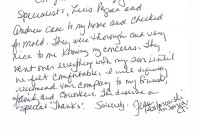 Specialists, Luis Pagan and
Andrew came to my home and checked
for mold. They were thorough and very
nice to me knowing my concerns. They
went over everything with my son until
he felt comfortable. I will definitely
recommend your company to my friends,
family and coworkers. They deserve a
special "Thanks". Sincerely,